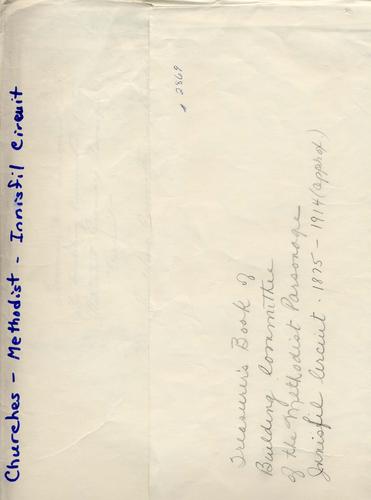 Churches - Methodist - Innisfil Circuit
2869
Treasurer's Book of
Building Committee
of the Methodist Parsonage
Innisfil Circuit. 1875 - 1914 (approx)